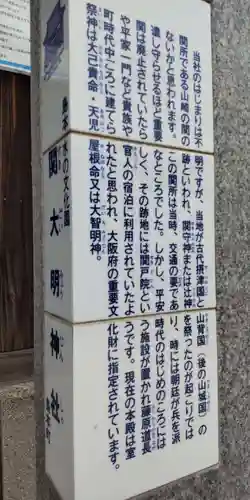 当社のはじまりは不明ですが、当地が古代摂津国と山背国（後の山城国）の
関所である山崎の関の跡といわれ、関守神または辻神を祭ったのが起こりでは
ないかと思われます。この関所は当時、交通の要であり、時には朝廷が兵を派
遣し守らせるほど重要なところでした。しかし、平安時代のはじめのころには
関は廃止されていたらしく、その跡地には関戸院という施設が置かれ藤原道長
や平家一門など貴族や官人の宿泊に利用されていたようです。現在の本殿は室
町時代中ごろに建てられたと思われ、大阪府の重要文化財に指定されています。
祭神は大己貴命・天児屋根命又は大智明神。
水の文化園
関大明神社